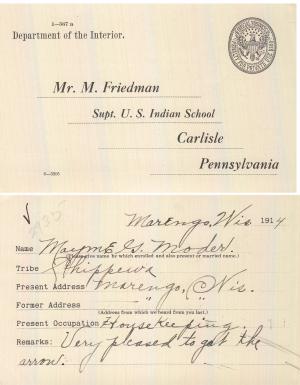 5—367 a
Department of the Interior.
Mr. M. Friedman
Supt. U. S. Indian School
Carlisle
Pennsylvania
Marengo, Wis 1914
Name Mayme G. Moder.
(Please give name by which enrolled and also present or married name.)
Tribe Chippewa
Present Address Marengo, Wis.
Former Address " "
(Address from which we heard from you last.)
Present Occupation Housekeeping.
Remarks: Very pleased to get the
arrow.